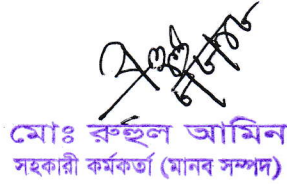 মোঃ রুহুল আমিন
সহকারী কর্মকর্তা (মানব সম্পদ)